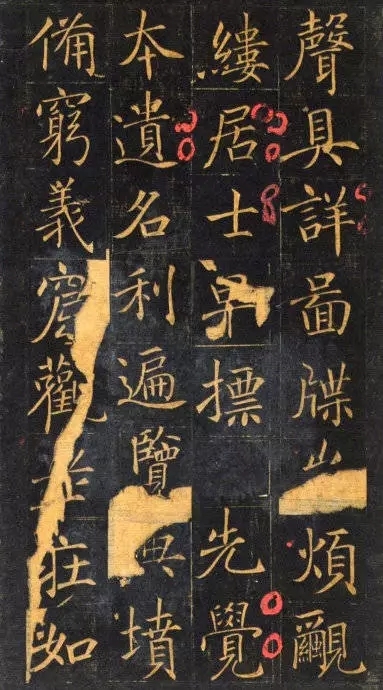 聲具詳啚牒煩覼
縷居士早摽先覺
本遺名利遍覽典墳
備窮義觀莊如